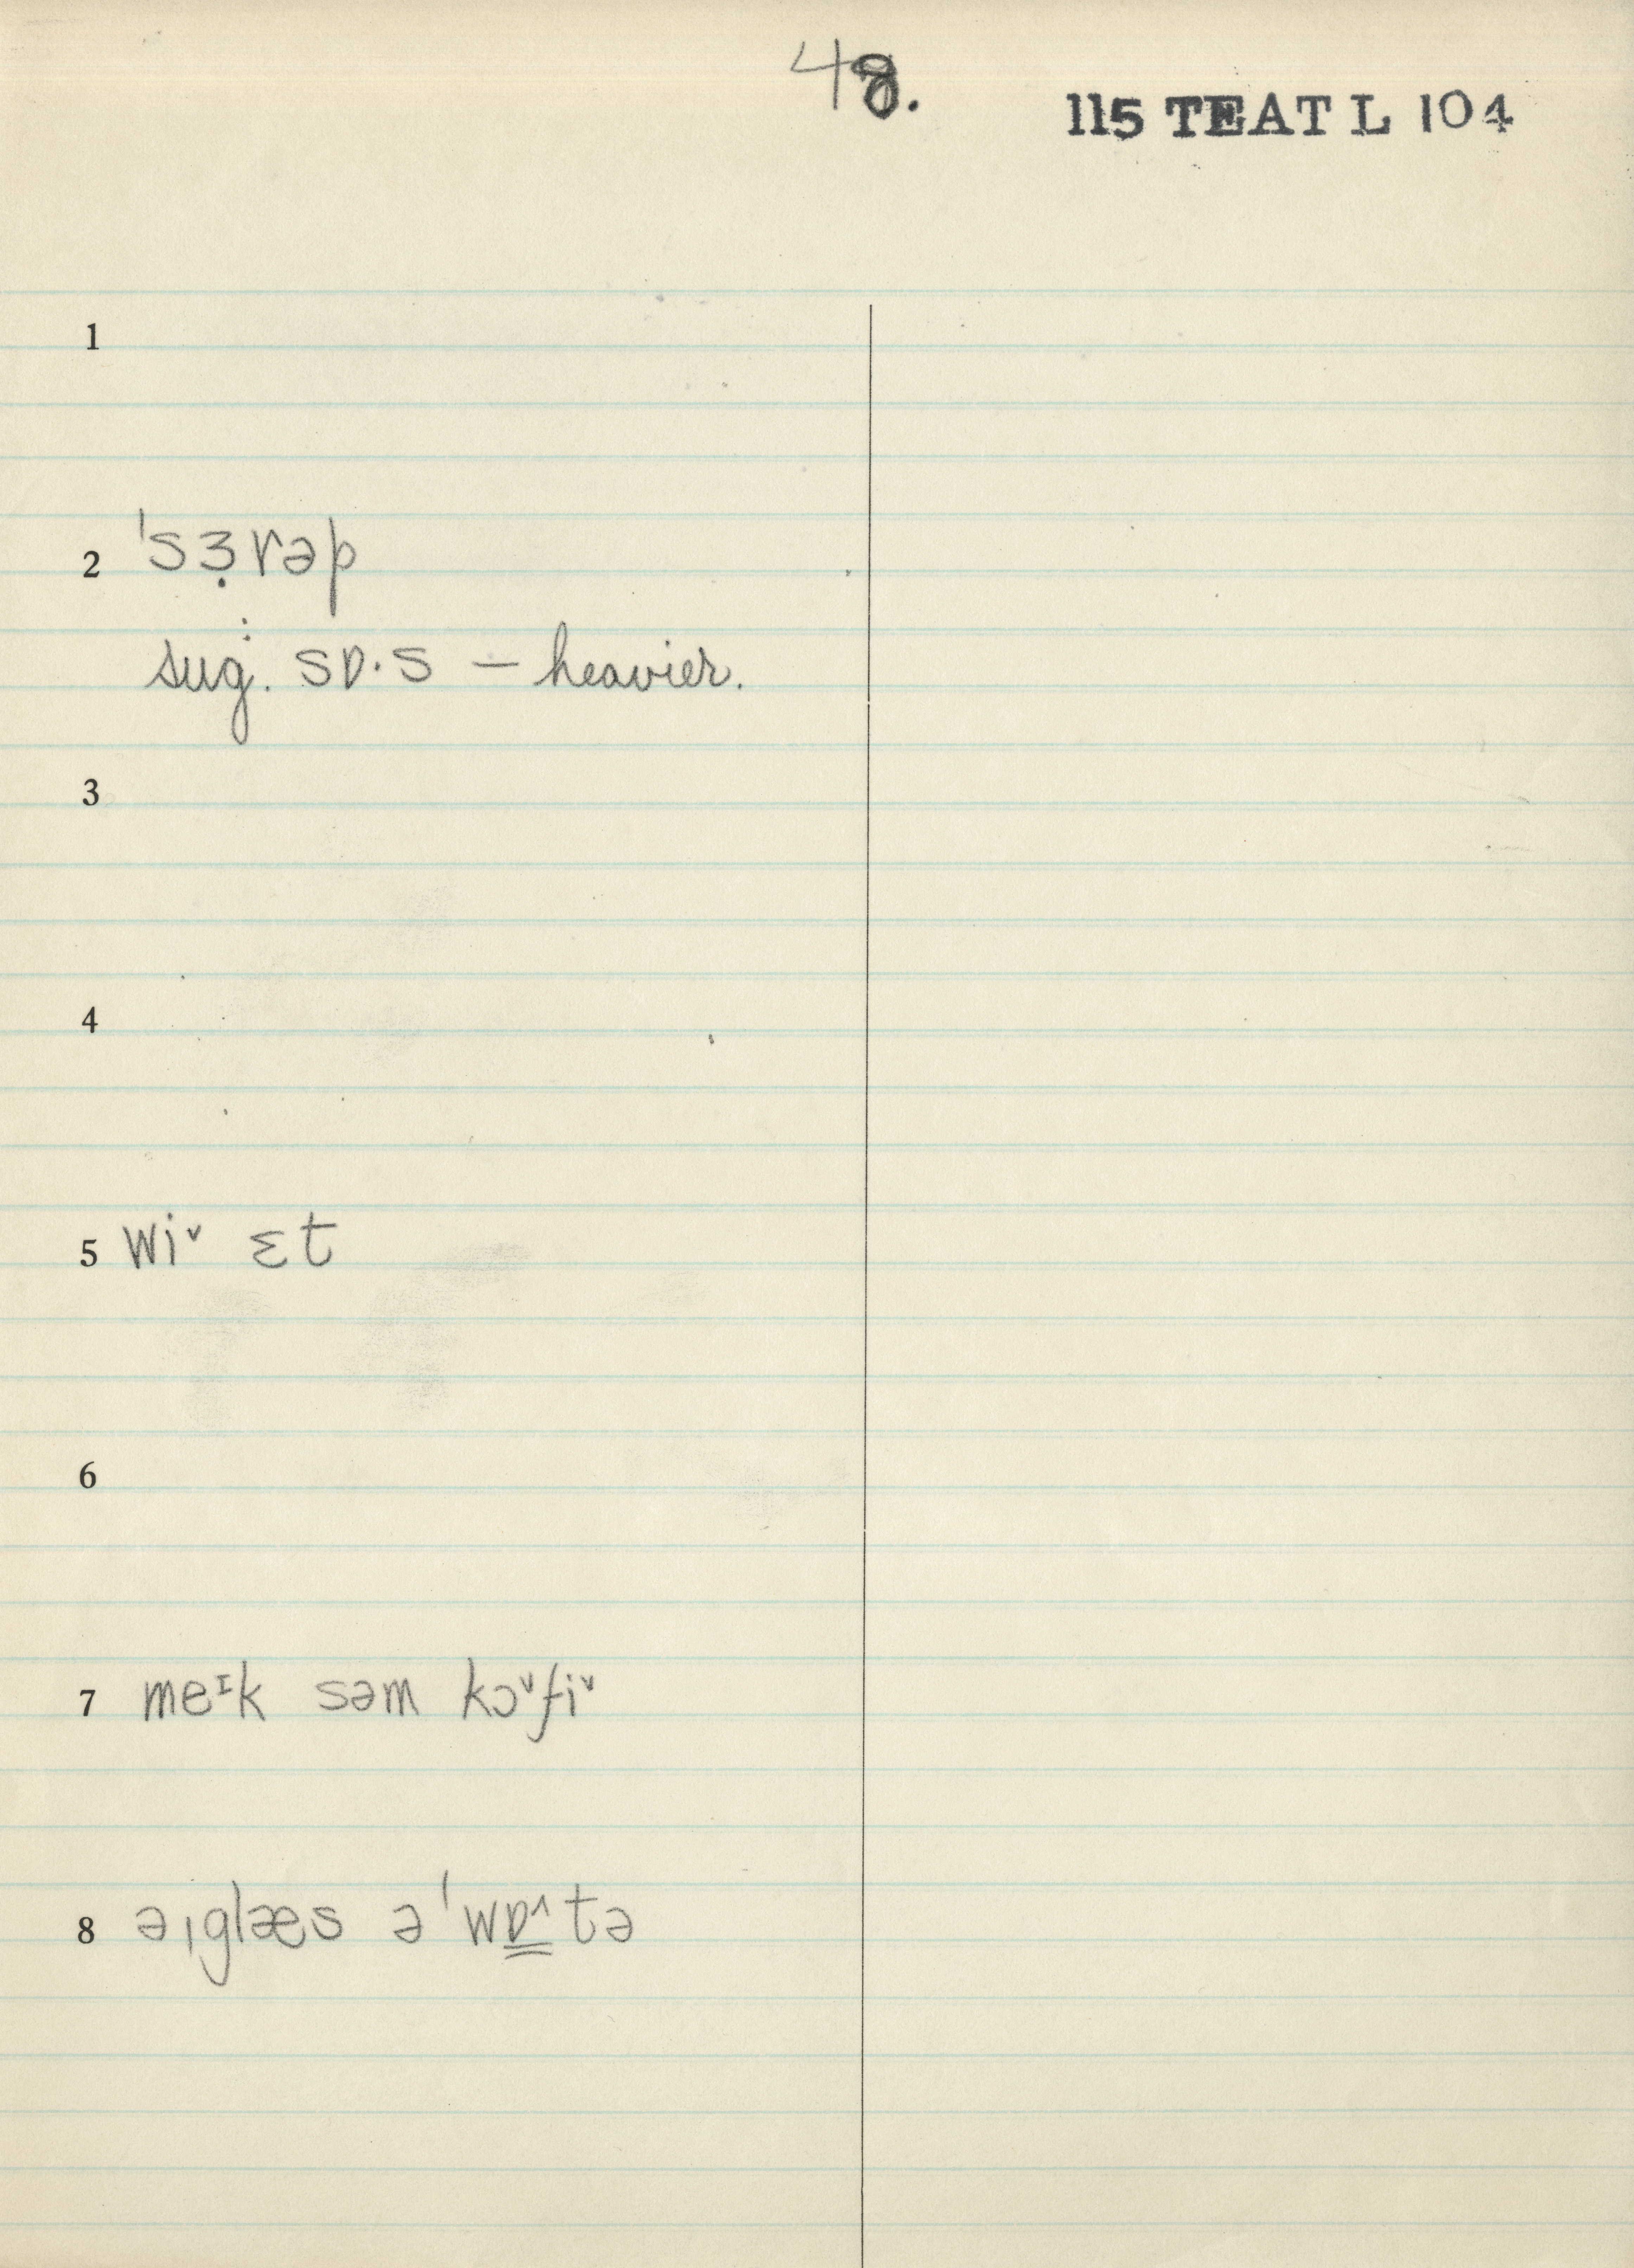 48.
115 TEAT L 104
1
2 ˈsɜ̣rəp
: sug. sɒ·s — heavier.
3
4
5 wiᵛ ɛt
6
7 meᶦk səm kɔᵛfiᵛ
8 əˌglæs əˈwɒ̳ˆtə